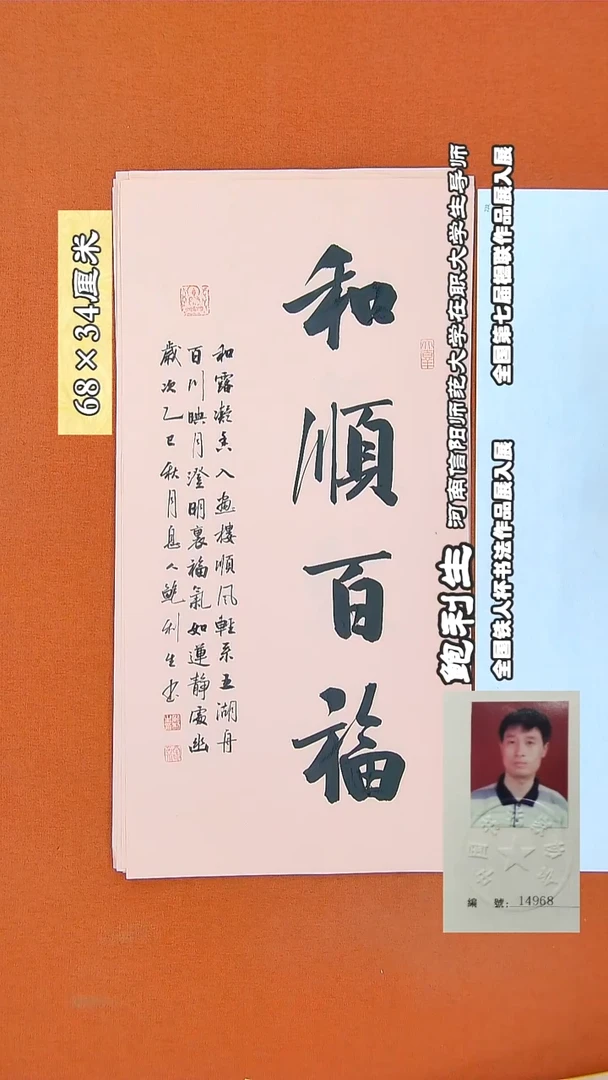 68×34厘米
和順百福
和露凝香入畫樓順風輕系五湖舟
百川映月澄明裏福氣如蓮靜處幽
歲次乙巳秋月息人鮑利生书
鲍利生 河南信阳师范大学在职大学生导师
全国铁人杯书法作品展入展 全国第七届楹联作品展入展
編 號: 14968